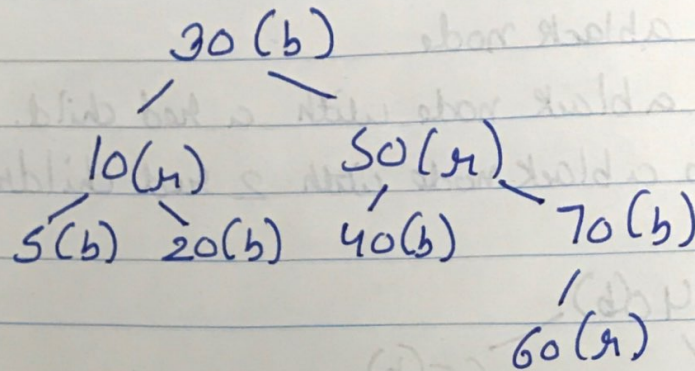 30 (b)
10(r) 50(r)
5(b) 20(b) 40(b) 70(b)
60(r)